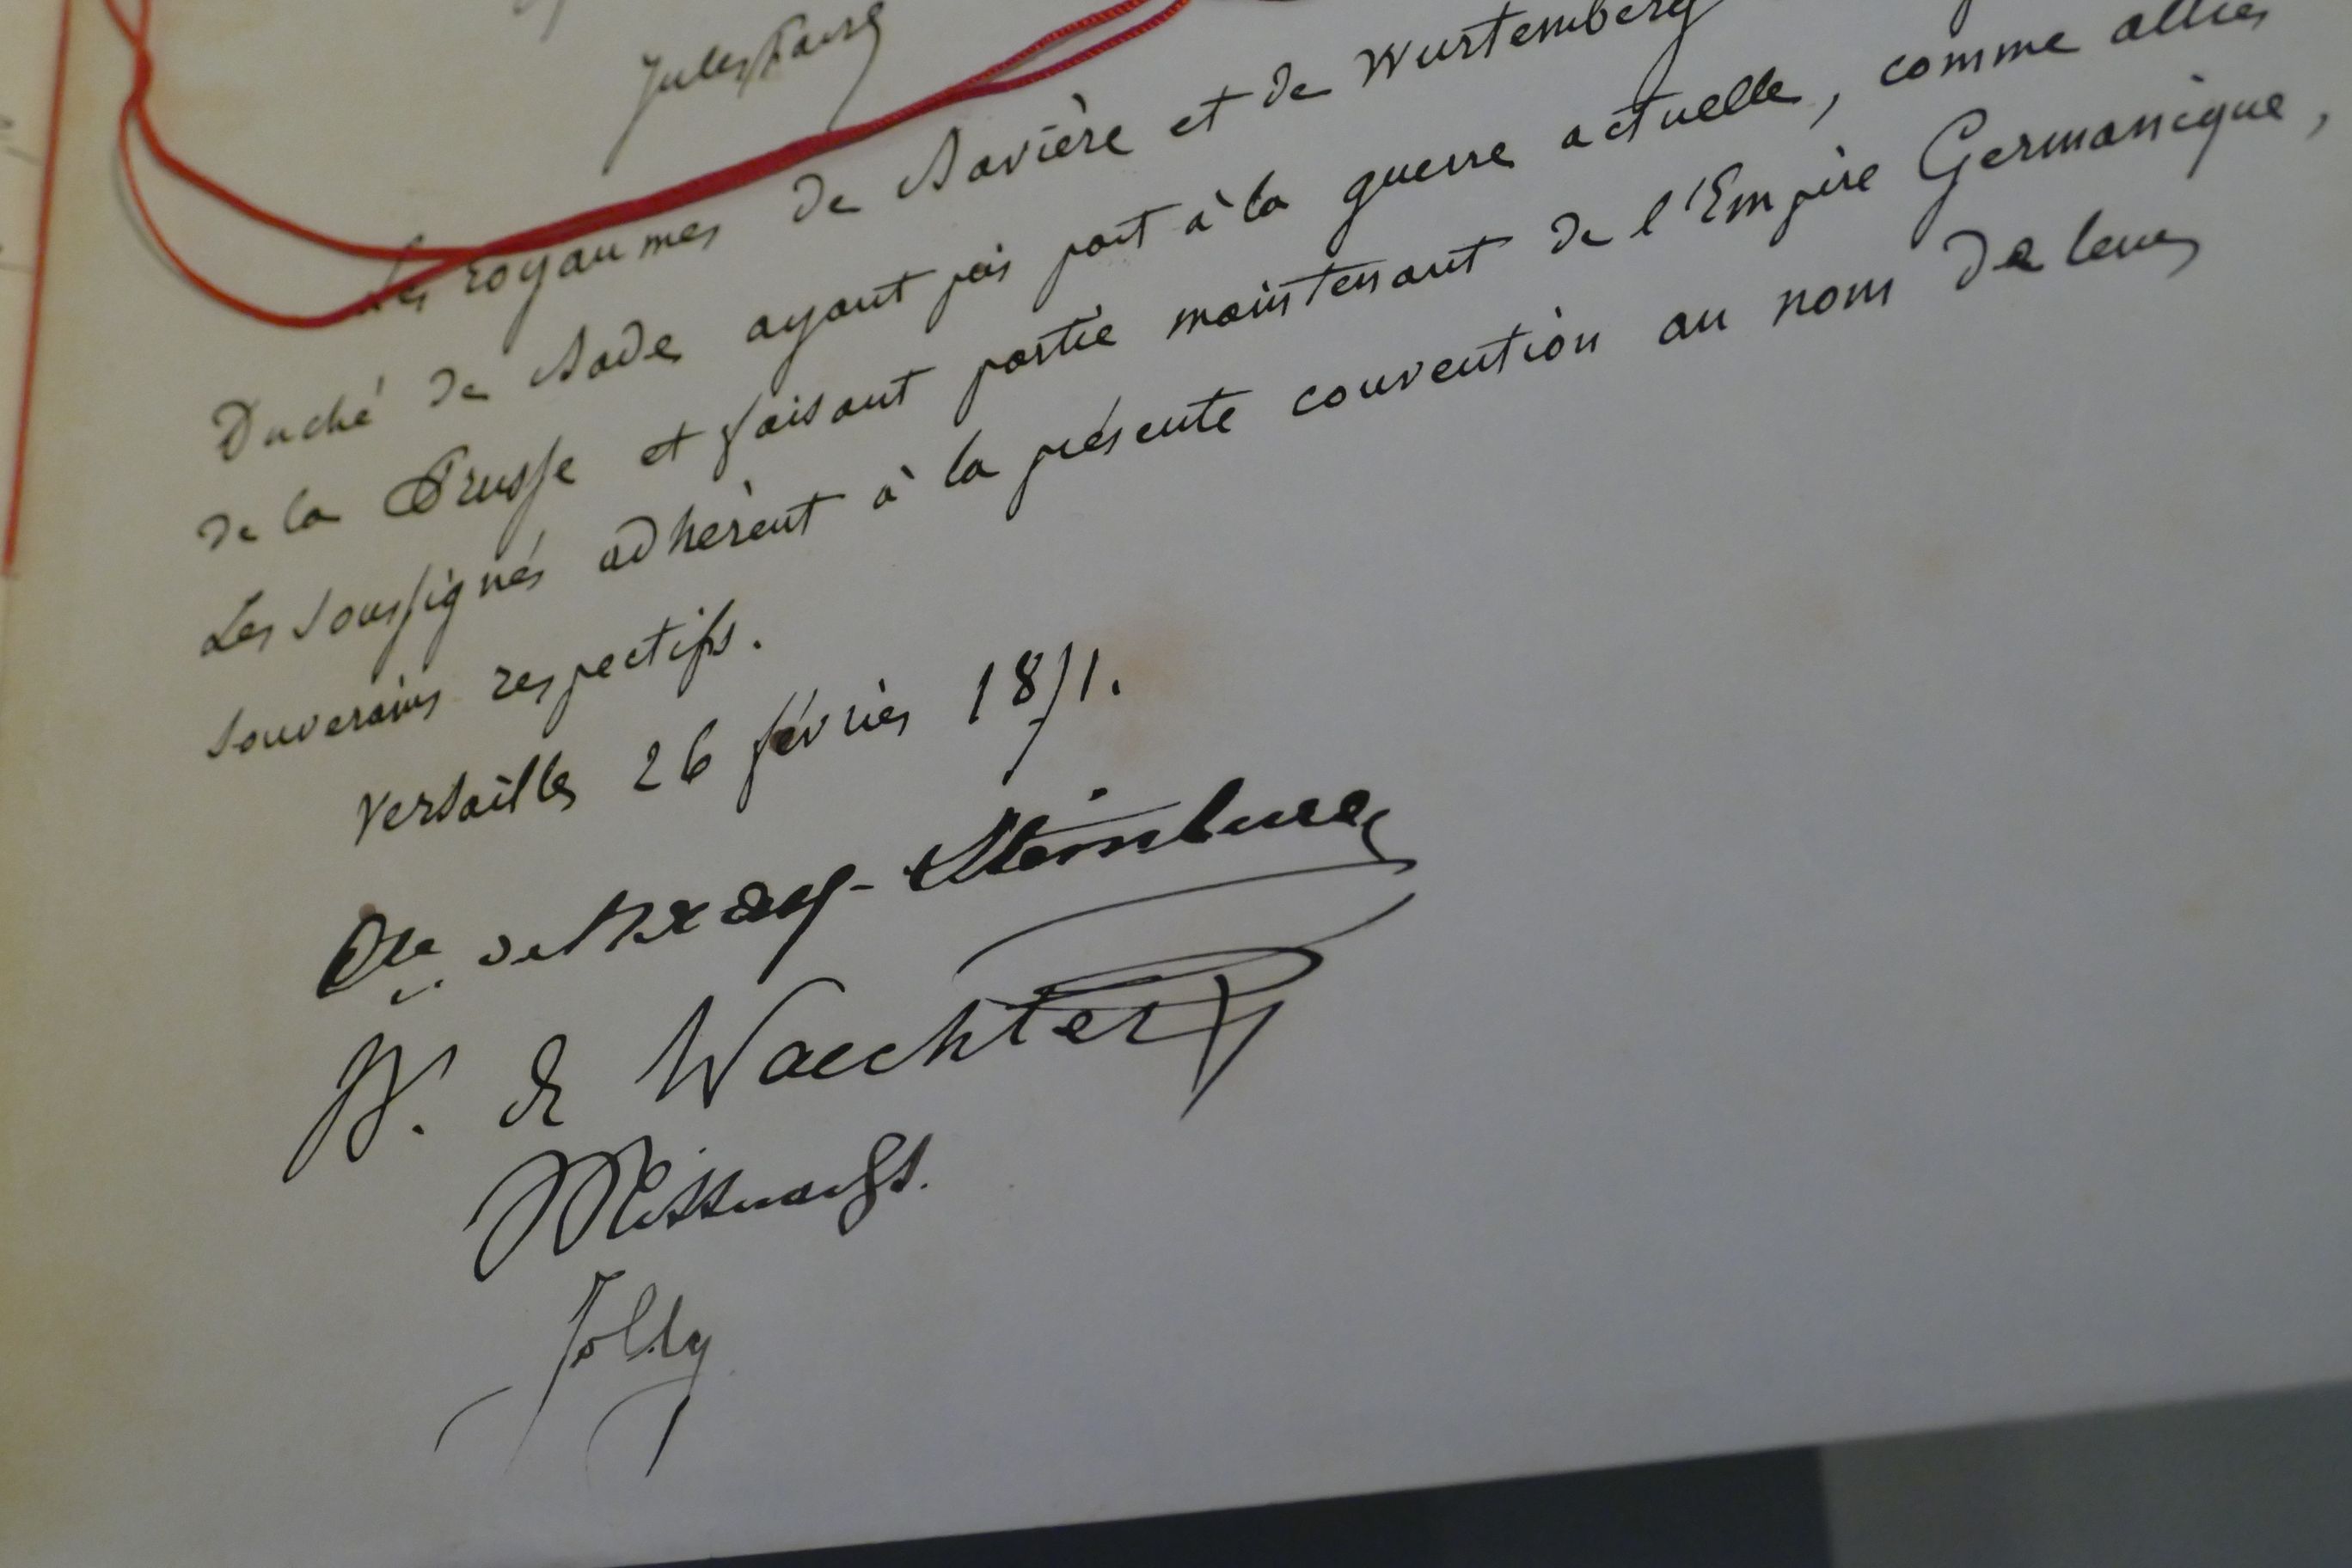 Jules Favre
Les royaumes de Bavière et de Wurtemberg
Duché de Bade ayant pris part à la guerre actuelle, comme alliés
de la Prusse et faisant partie maintenant de l'Empire Germanique,
Les soussignés adhèrent à la présente convention au nom de leurs
souverains respectifs.
Versailles 26 février 1871.
Cte de Bray-Steinburg
W. de Waechter
Mittnacht.
Jolly